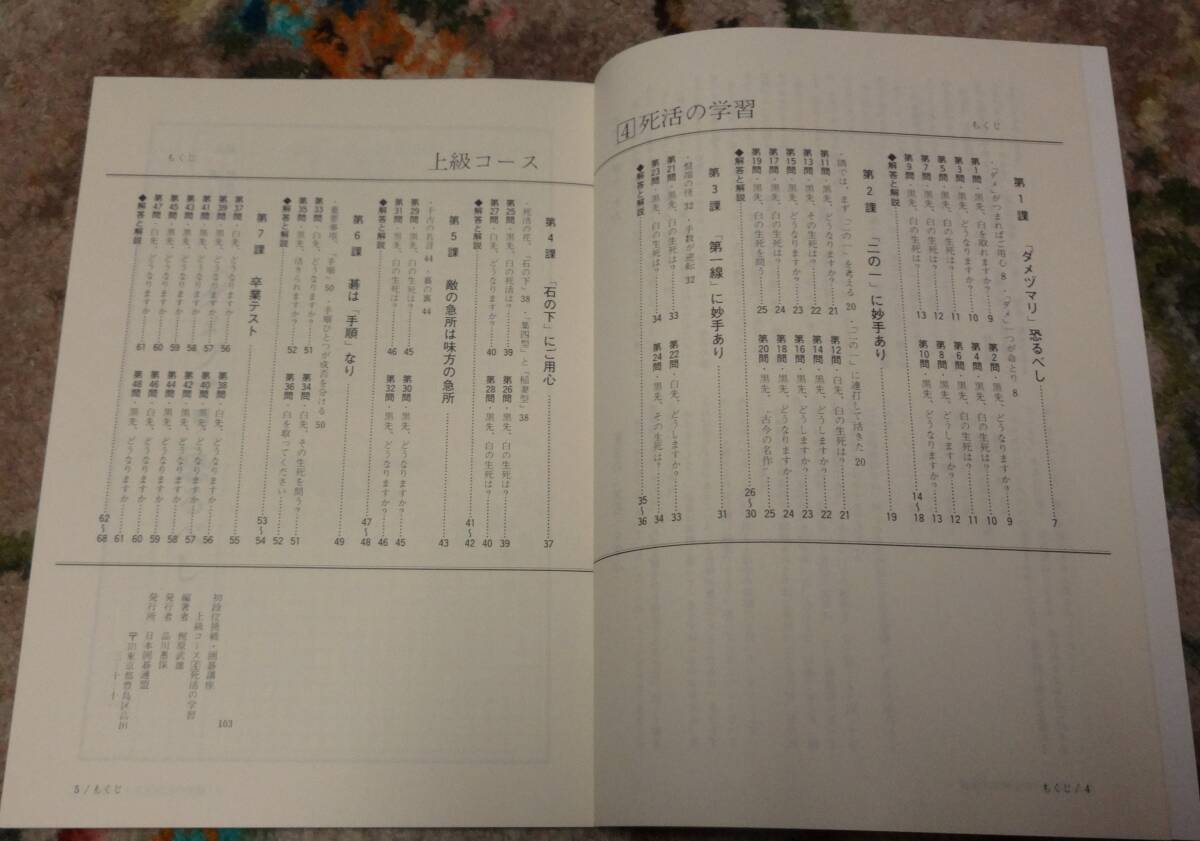 もくじ
4 死活の学習
第1課 「ダメヅマリ」恐るべし……7
・「ダメ」がつまればご用心 8 ・「ダメ」一つが命とり 8
第1問・黒先、白を取れますか?……9
第2問・黒先、どうなりますか?……9
第3問・黒先、白の生死は?……10
第4問・黒先、白の生死は?……10
第5問・黒先、白の生死は?……11
第6問・黒先、白の生死は?……11
第7問・黒先、
第8問・黒先、どうしますか?……12
第9問・黒先、白の生死は?……13
第10問・黒先、どうなりますか?……13
◆解答と解説……14〜18
第2課 「二の一」に妙手あり……19
・隅では、まず「二の一」を考える 20 ・「二の一」に連打して活きた 20
第11問・黒先、どうなりますか?……21
第12問・白先、白の生死は?……21
第13問・黒先、その生死は?……22
第14問・黒先、どうしますか?……22
第15問・黒先、どうなりますか?……23
第16問・黒先、どうしますか?……23
第17問・黒先、白の生死は?……24
第18問・黒先、どうなりますか……24
第19問・黒先、白の生死を問う……25
第20問・黒先、古今の名作……25
◆解答と解説……26〜30
第3課 「第一線」に妙手あり……31
・盤端の怪 32 ・手数が逆転 32
第21問・黒先、白の生死は?……33
第22問・白先、どうしますか?……33
第23問・黒先、白の生死は?……34
第24問・黒先、その生死は?……34
◆解答と解説……35〜36
もくじ/4
上級コース
もくじ
第4課 「石の下」にご用心……37
・死活の花、「石の下」38 ・「集四型」と「稲妻型」38
第25問・白先、白の死活は?……39
第26問・黒先、白の生死は?……39
第27問・白先、どうなりますか?……40
第28問・黒先、白の生死は?……40
◆解答と解説……41〜42
第5課 敵の急所は味方の急所……43
・千古の名言 44 ・碁の裏 44
第29問・黒先、白の生死は?……45
第30問・黒先、どうなりますか?……45
第31問・黒先、白の生死は?……46
第32問・黒先、どうなりますか?……46
◆解答と解説……47〜48
第6課 碁は「手順」なり……49
・重要事項、「手順」50 ・手順ひとつが成否を分ける 50
第33問・白先、どうなりますか?……51
第34問・白先、その生死を問う?……51
第35問・黒先、活きられますか?……52
第36問・黒先、白を取ってください……52
◆解答と解説……53〜54
第7課 卒業テスト……55
第37問・白先、どうなりますか……56
第38問・白先、どうなりますか……56
第39問・黒先、どうなりますか……57
第40問・黒先、どうなりますか……57
第41問・黒先、どうなりますか……58
第42問・黒先、どうなりますか……58
第43問・白先、どうなりますか……59
第44問・黒先、どうなりますか……59
第45問・黒先、どうなりますか……60
第46問・白先、どうなりますか……60
第47問・白先、どうなりますか……61
第48問・黒先、どうなりますか……61
◆解答と解説……62〜68
初段位挑戦・囲碁講座
上級コース④死活の学習
編著者 梶原武雄
発行者 品川恵保
発行所 日本囲碁連盟
東京都豊島区高田
103
5/もくじ